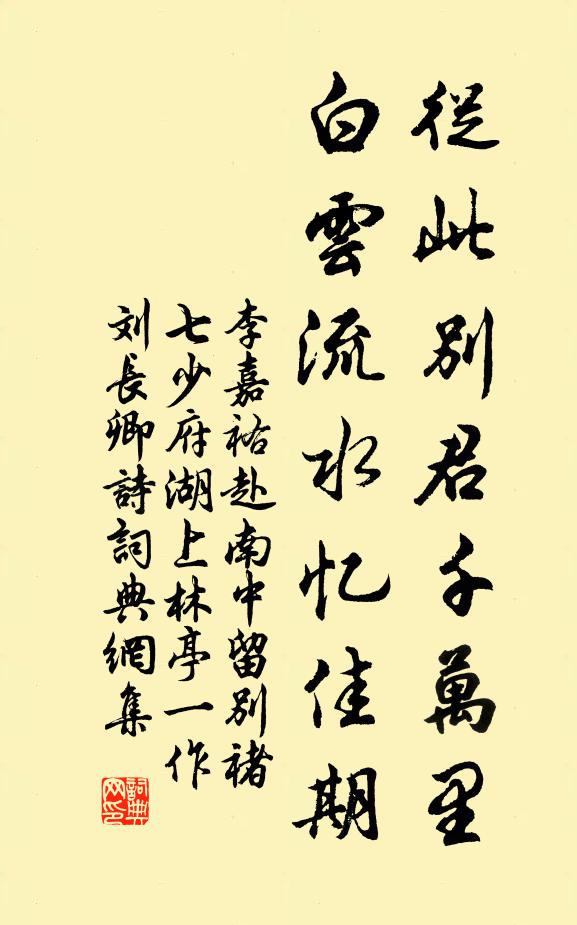 從此別君千萬里
白雲流水忆佳期
李嘉祐赴南中留别褚
七少府湖上林亭一作
刘長卿詩詞典網集
詞典网印